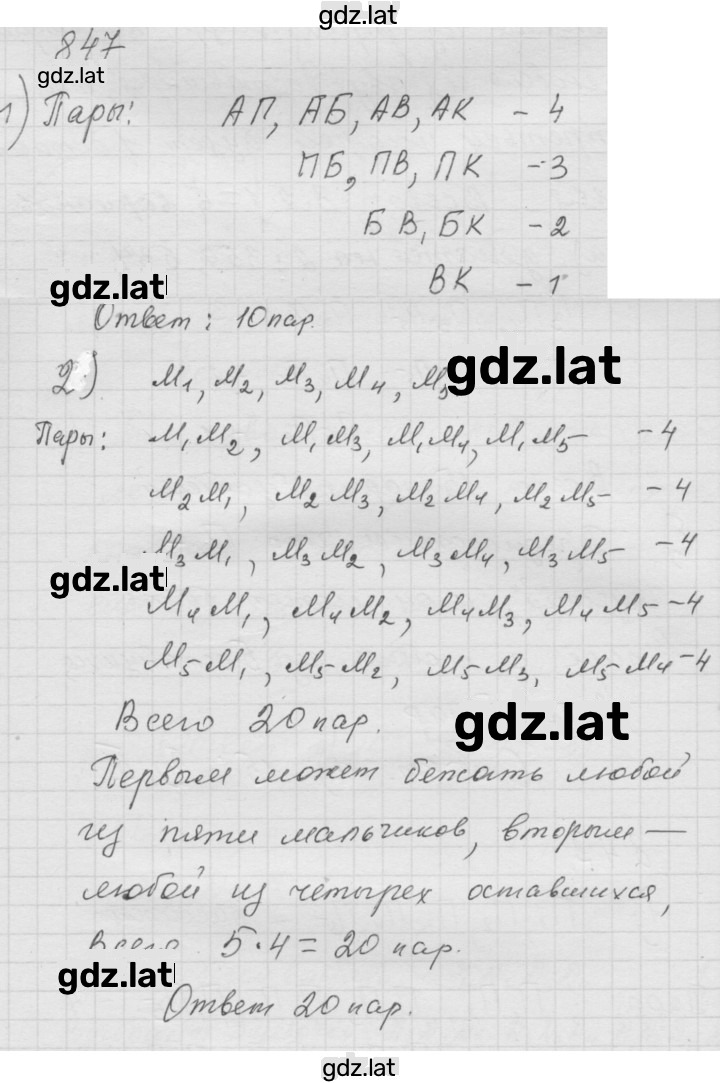 gdz.lat
847
gdz.lat
1) Пары: АП, АБ, АВ, АК - 4
ПБ, ПВ, ПК - 3
БВ, БК - 2
gdz.lat
ВК - 1
Ответ: 10 пар.
2) М1, М2, М3, М4, М5
gdz.lat
Пары: М1М2, М1М3, М1М4, М1М5 - 4
М2М1, М2М3, М2М4, М2М5 - 4
М3М1, М3М2, М3М4, М3М5 - 4
gdz.lat
М4М1, М4М2, М4М3, М4М5 - 4
М5М1, М5М2, М5М3, М5М4 - 4
Всего 20 пар.
gdz.lat
Первым может бежать любой
из пяти мальчиков, вторым —
любой из четырех оставшихся,
всего 5·4 = 20 пар.
gdz.lat
Ответ 20 пар.
gdz.lat